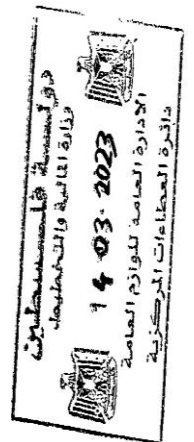 دولة فلسطين
وزارة المالية والتخطيط
14-03-2023
الادارة العامة للوازم العامة
دائرة العطاءات المركزية